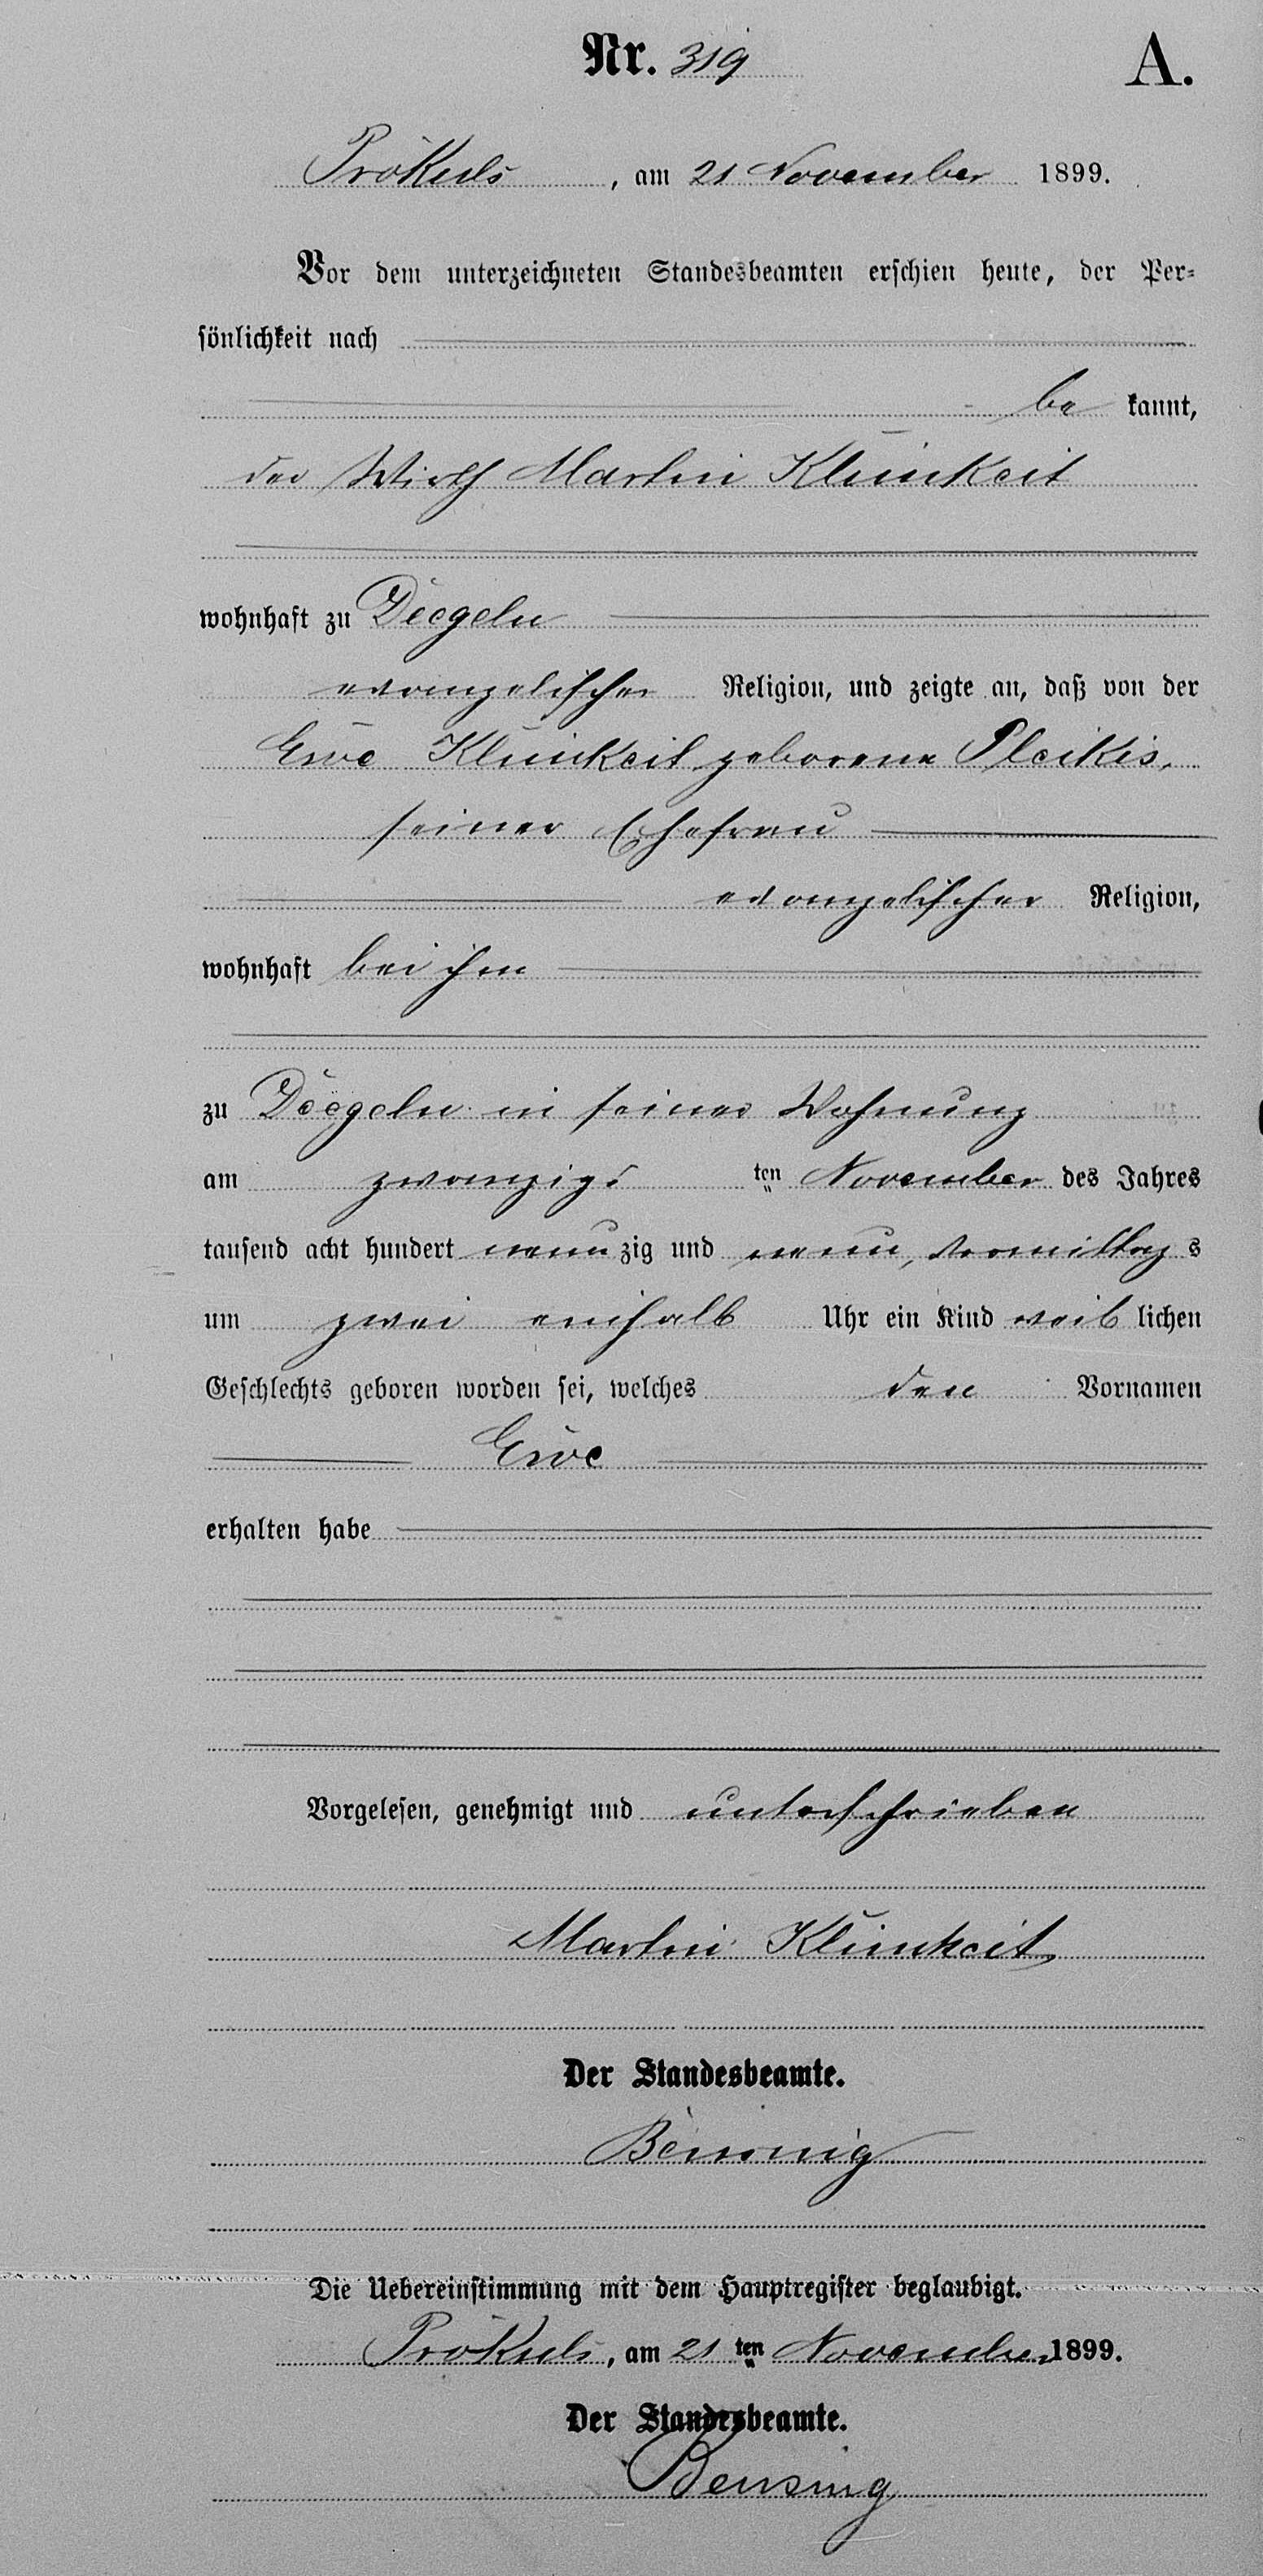 Nr. 319 A.
Prökuls, am 21 November 1899.
Vor dem unterzeichneten Standesbeamten erschien heute, der Per-
sönlichkeit nach
be kannt,
der Wirth Martin Klimkeit
wohnhaft zu Deegeln
evangelischer Religion, und zeigte an, daß von der
Ewe Klimkeit geborene Pleikis,
seiner Ehefrau
evangelischer Religion,
wohnhaft bei ihm
zu Deegeln in seiner Wohnung
am zwanzigs ten November des Jahres
tausend acht hundert neunzig und neun, Vormittags
um zwei einhalb Uhr ein Kind weiblichen
Geschlechts geboren worden sei, welches den Vornamen
Ewe
erhalten habe
Vorgelesen, genehmigt und unterschrieben
Martin Klimkeit
Der Standesbeamte.
Bensing
Die Uebereinstimmung mit dem Hauptregister beglaubigt.
Prökuls, am 21 ten November 1899.
Der Standesbeamte.
Bensing